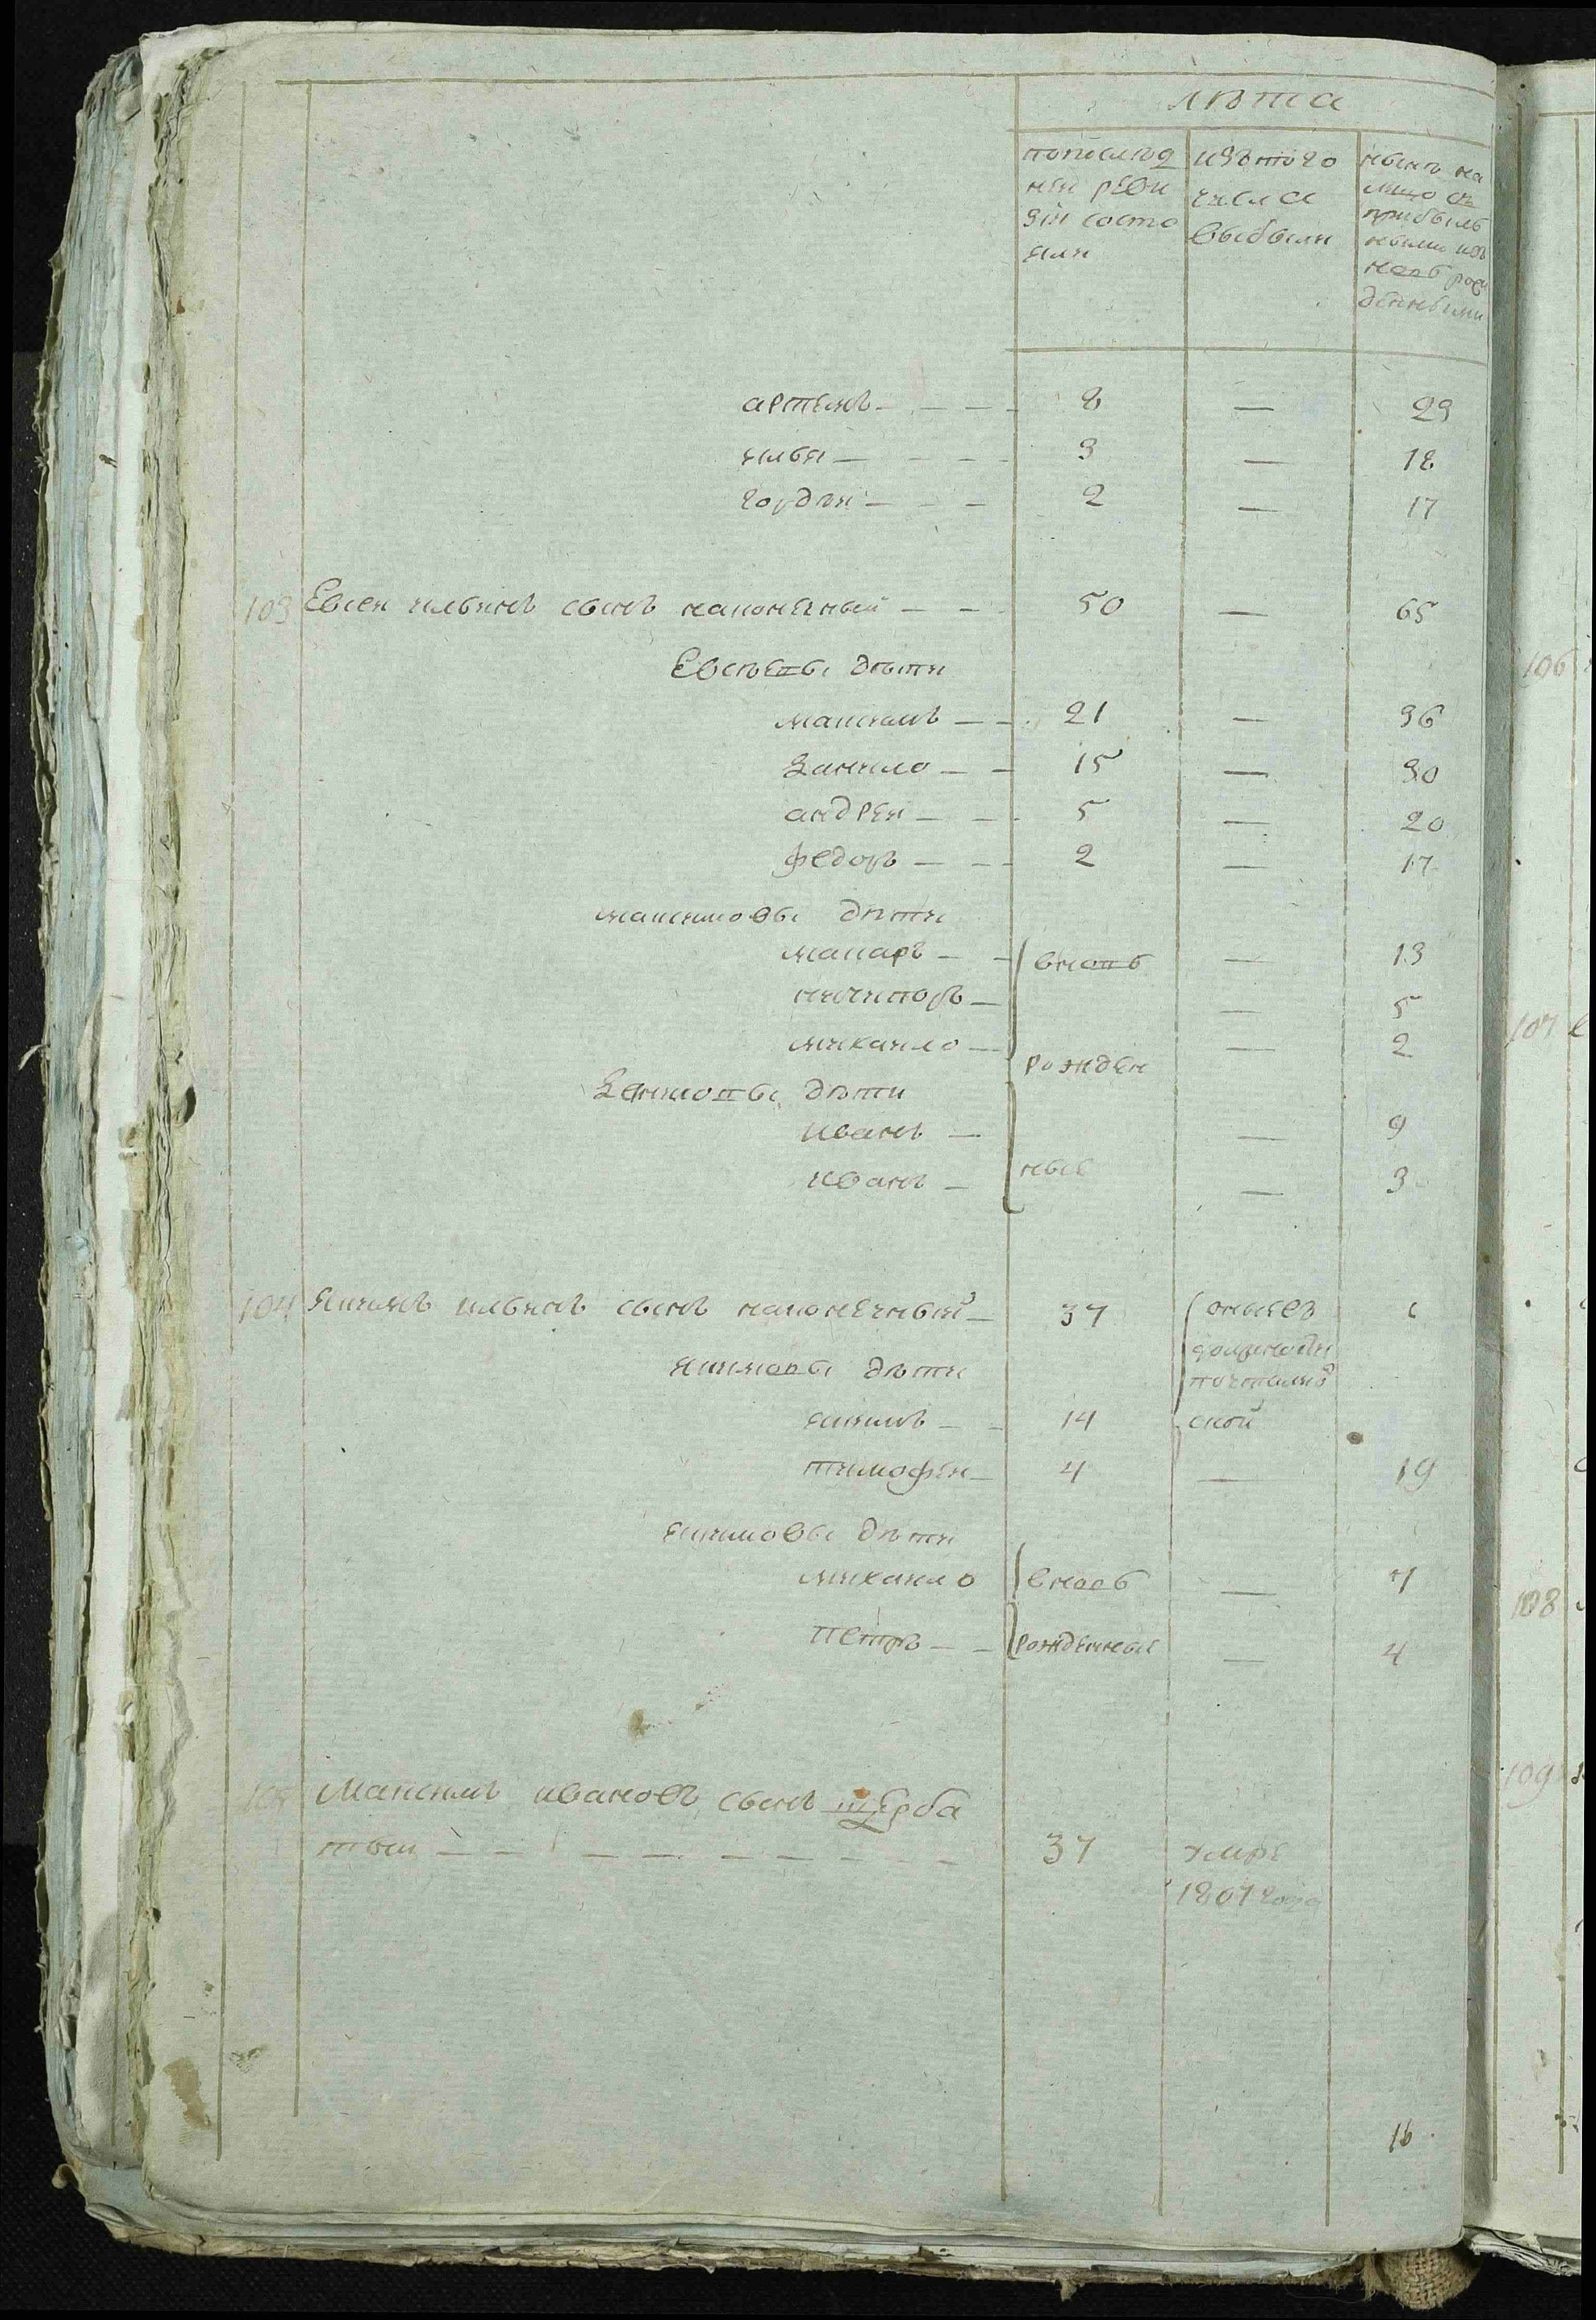 лѣта
попослѣд
ней реви
зіи состо
яли
изътого
числа
выбыли
нынѣ на
лицо съ
прибыль
ными изъ
новъ рож
денными
артемъ — — — 8 — 29
илья — — — 3 — 18
гордѣи — — — 2 — 17
103 Евсеи ильинъ сынъ наконечный — — 50 — 65
Евсѣевы дѣти
максимъ — — 21 — 36
Данило — — 15 — 30
андреи — — 5 — 20
федоръ — — 2 — 17
максимовы дѣти
макаръ — — вновь — 13
ничипоръ — — 5
михаило — — 2
рожден
Даниловы дѣти
иванъ — — 9
иванъ — ные — 3
104 якимъ ильинъ сынъ наконечный — 37
якимовы дѣти
якимъ — — 14 ской
тимофеи — 4 — 19
якимовы дѣти
михаило вновь — 7
петръ — — рожденные — 4
105 Максимъ ивановъ сынъ щерба
тыи — — — — — — — — — 37 умре
1807 года
16
106
107
108
109